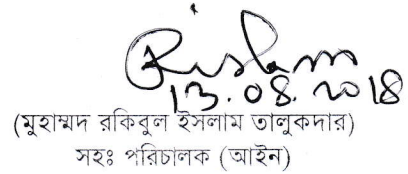 Rislam
13.08.2018
(মুহাম্মদ রকিবুল ইসলাম তালুকদার)
সহঃ পরিচালক (আইন)